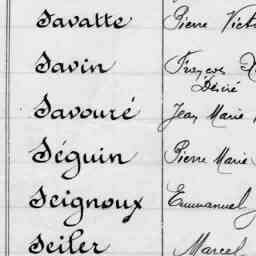 Savatte Pierre Vict
Savin François X
Désiré
Savouré Jean Marie
Séguin Pierre Marie
Seignoux Emmanuel J
Seiler Marcel